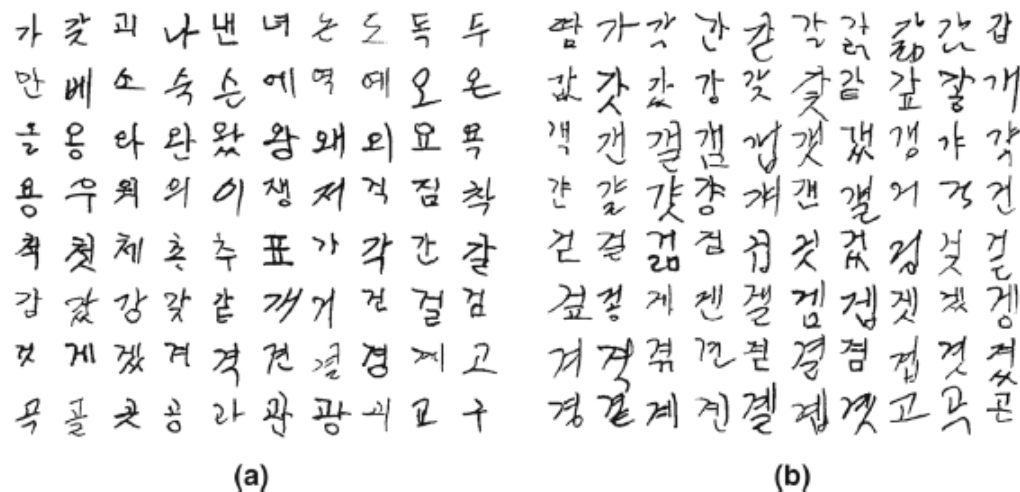 가 갖 괴 나 낸 녀 는 도 독 두
만 베 소 숙 슨 에 역 예 오 온
올 옹 와 완 왔 왕 왜 외 요 욕
용 우 의 이 생 저 직 짐 착
책 첫 체 추 표 가 각 간 갈
감 갔 강 갖 같 개 거 건 걸 검
것 게 겠 겨 격 견 결 경 계 고
곡 골 곳 공 과 관 광 괴 교 구
(a)
땀 가 각 간 갇 갈 갉 갊 감 갑
값 갓 갔 강 갖 갗 같 갚 갛 개
객 갠 갤 갬 갭 갯 갰 갱 갸 갹
갼 걀 걋 걍 걔 걘 걜 거 걱 건
걷 걸 걺 검 겁 것 겄 겅 겆 겉
겊 겋 게 겐 겔 겜 겝 겟 겠 겡
겨 격 겪 견 겯 결 겸 겹 겻 겼
경 곁 계 곈 곌 곕 곗 고 곡 곤
(b)